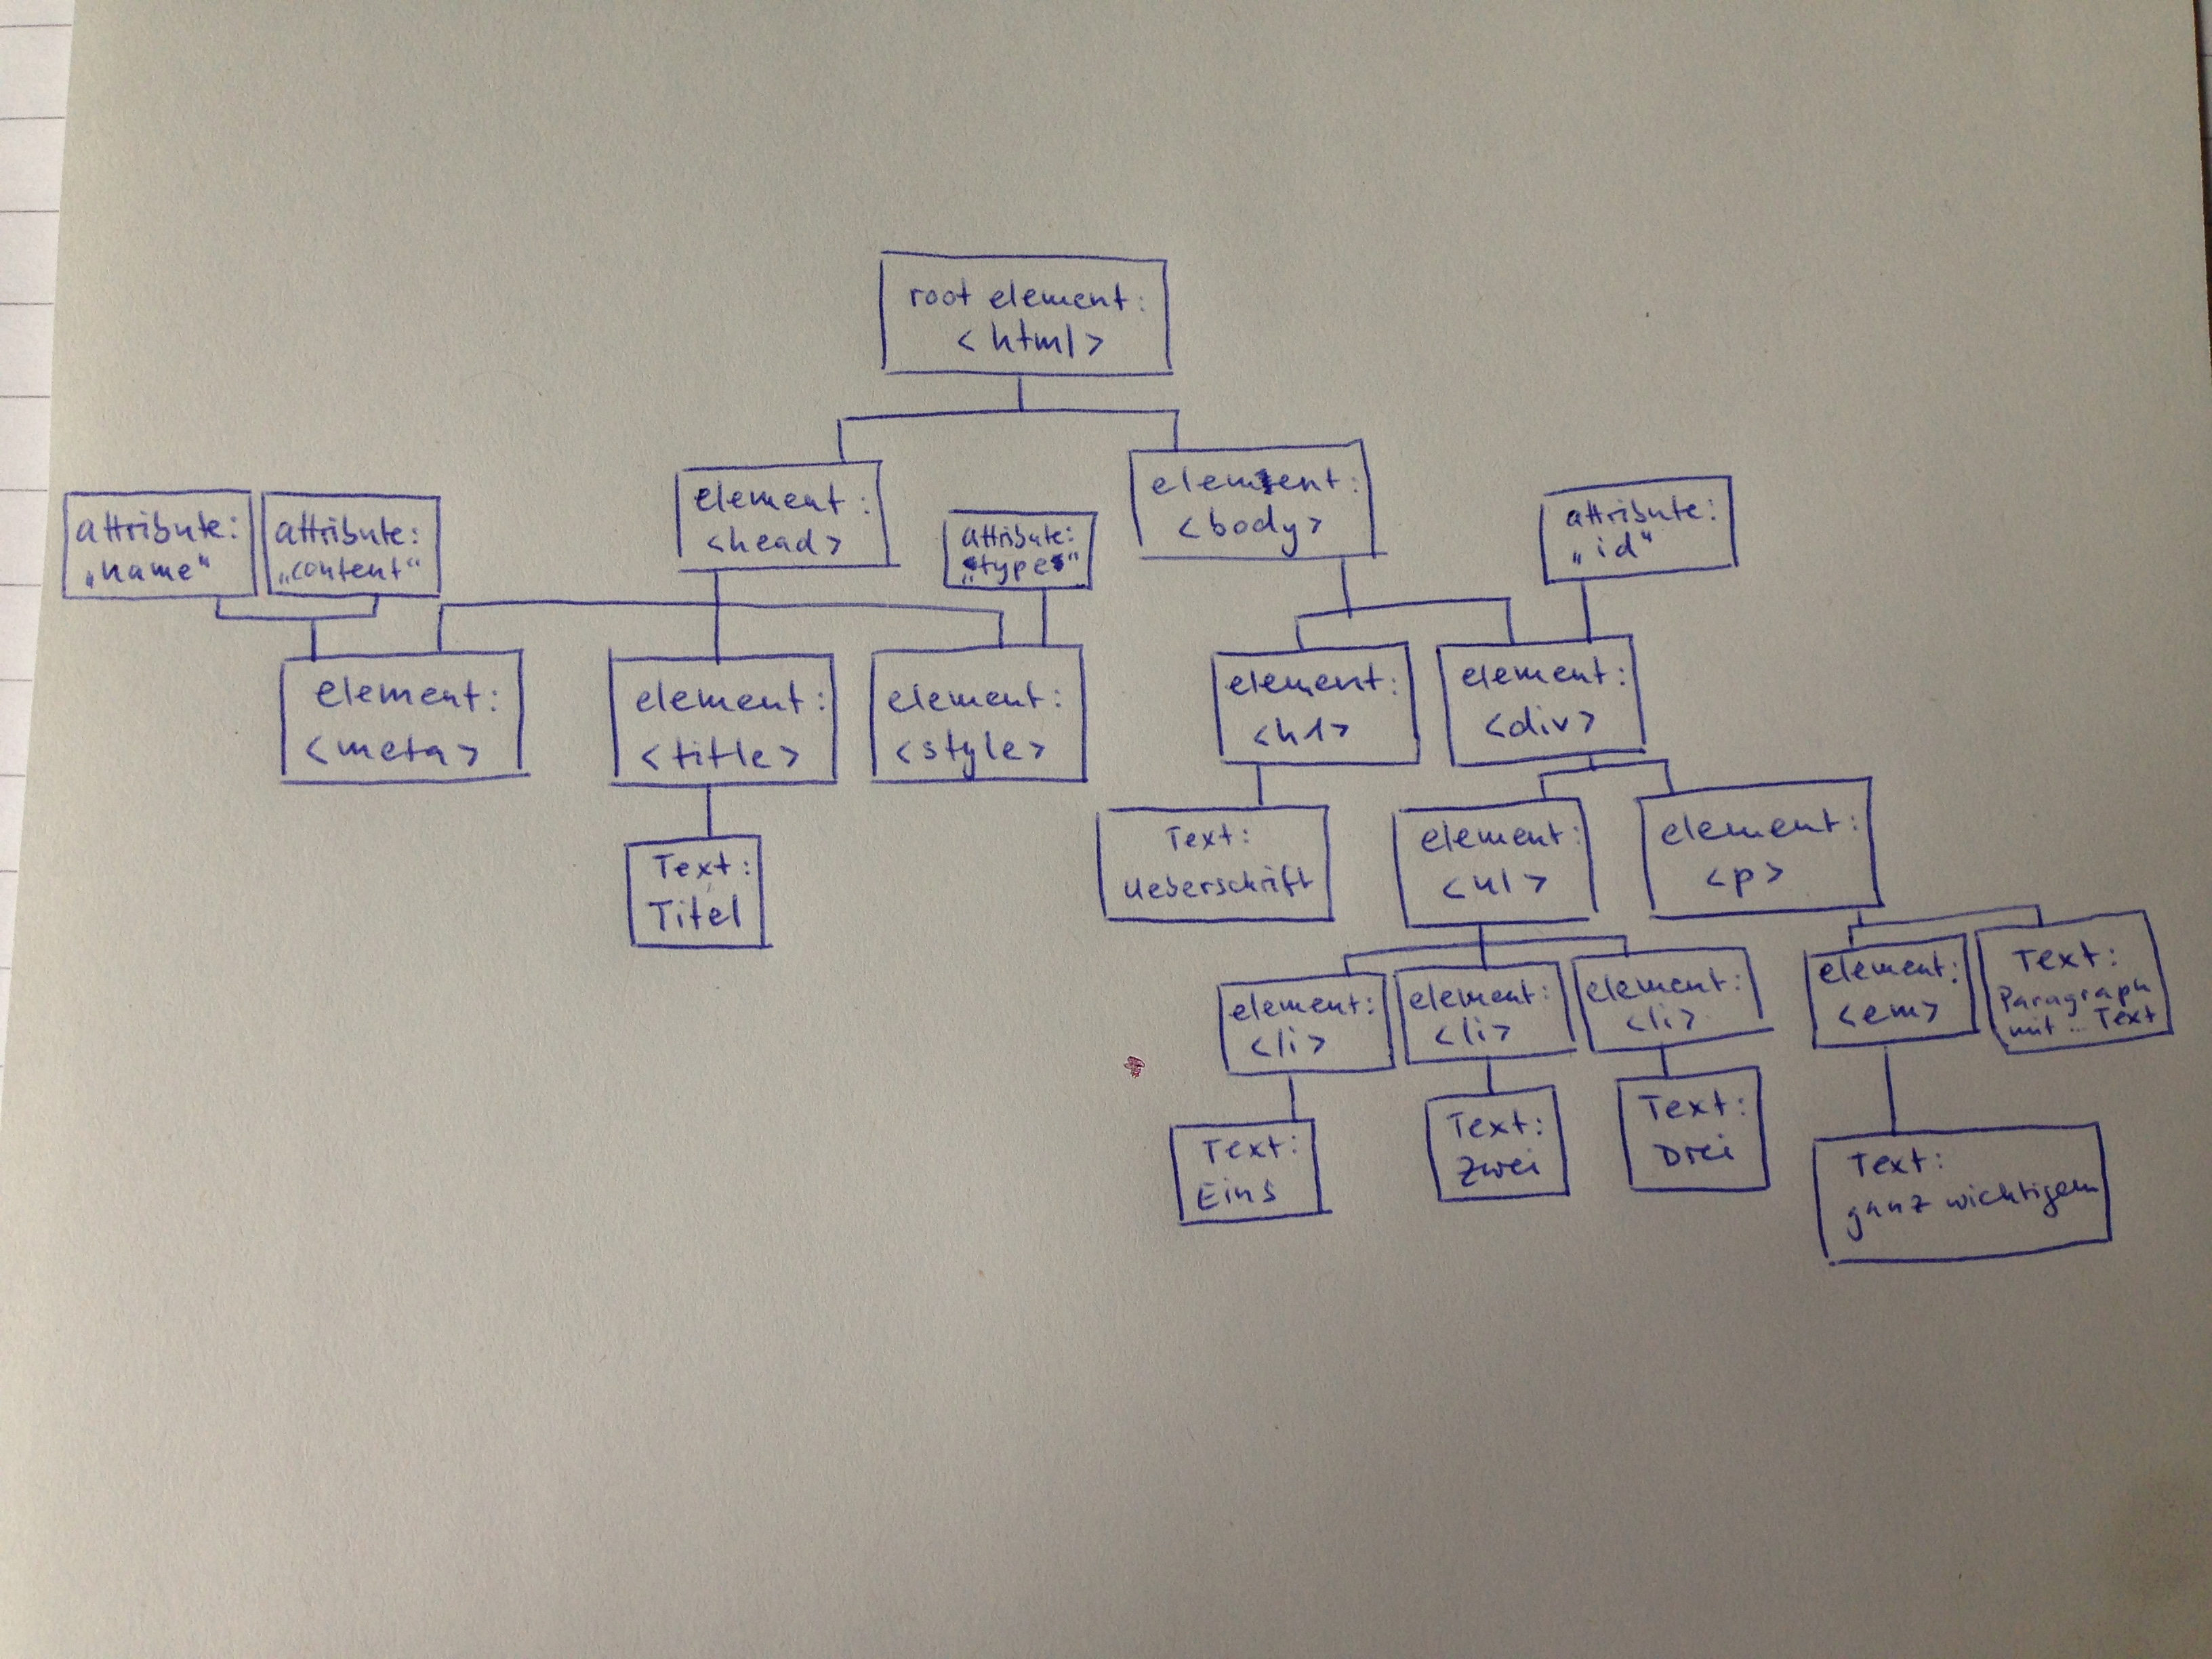 root element:
<html>
element:
<head>
element:
<body>
attribute:
„name“
attribute:
„content“
attribute:
„type“
attribute:
„id“
element:
<meta>
element:
<title>
element:
<style>
element:
<h1>
element:
<div>
Text:
Titel
Text:
Ueberschrift
element:
<ul>
element:
<p>
element:
<li>
element:
<li>
element:
<li>
element:
<em>
Text:
Paragraph
mit ... Text
Text:
Eins
Text:
Zwei
Text:
Drei
Text:
ganz wichtigem